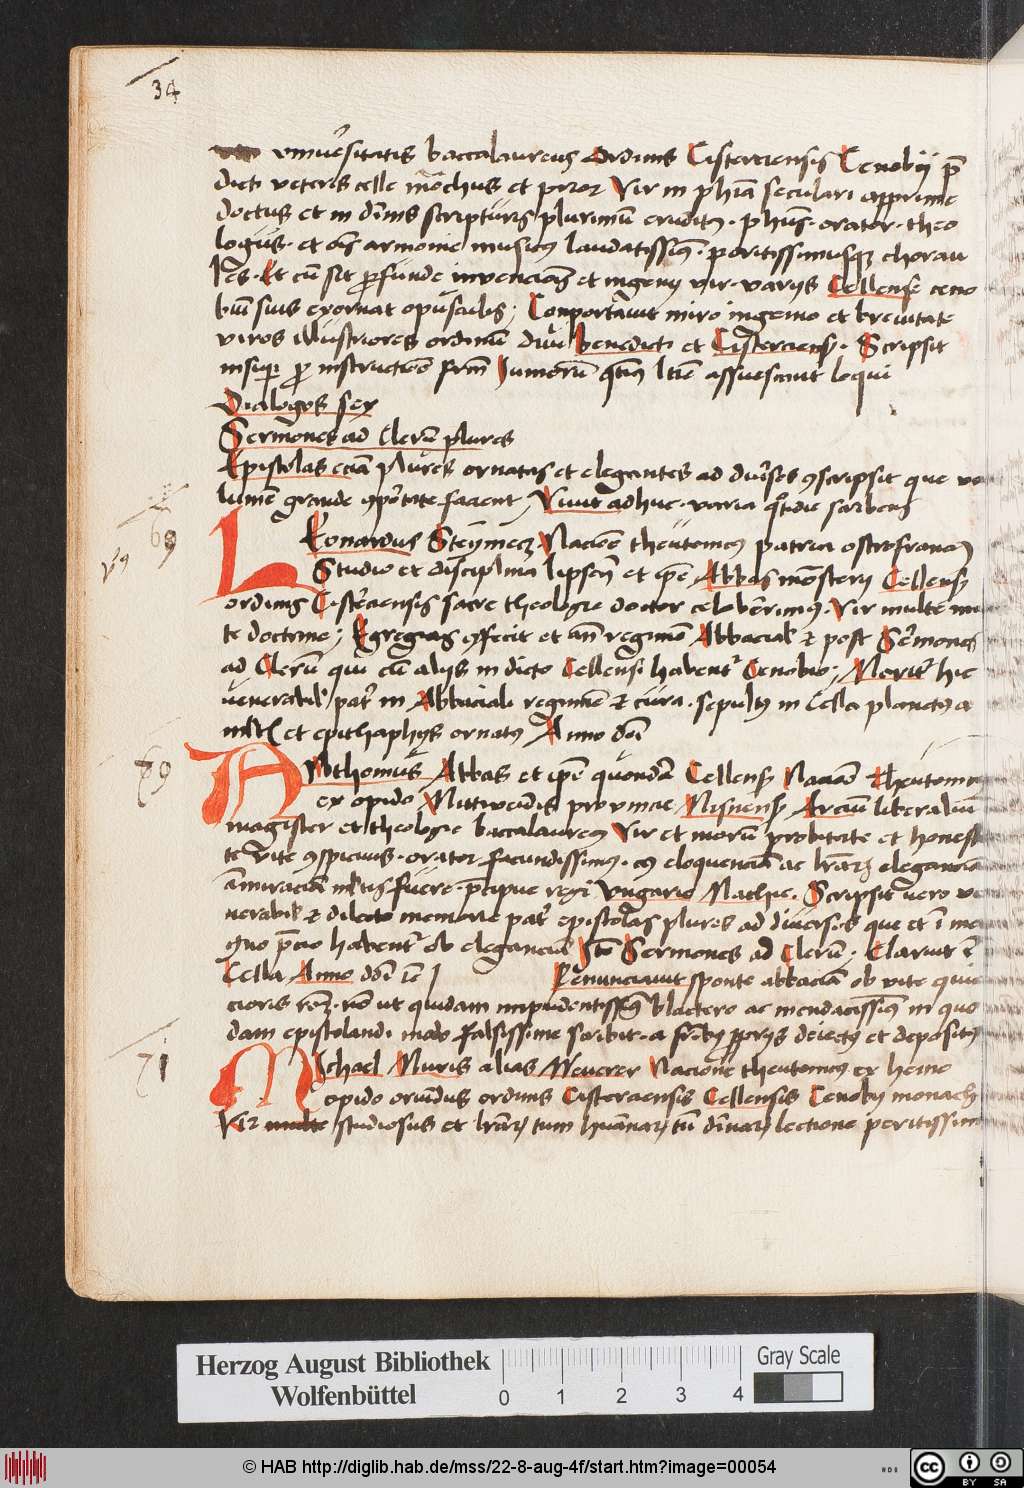 34
vniuersitatis baccalaureus Ordinis Cisterciensis Cenobij p̄
dicti veteris celle mōchus et prior Vir in phīa seculari apprime
doctus et in diuinis scripturis plurimū eruditus. phūs. orator. theo
logus. et oīs armonie musicus laudatissimus. peritissimusq̧ chorau
les. Et cū sit profunde invencionis et ingenij vir. varijs Cellense ceno
bium suis exornat opusculis; Conportauit miro ingenio et breuitate
viros illustriores ordinum diui benedicti et Cisterciensis. Scripsit
insup̄ pro instructione Juniorū loqui
Dialogos sex
Sermones ad Clerū plures
Epistolas eciā plures ornatas et elegantes ad diuersos ɔscripsit que vo
lumen grande facient, Viuit adhuc. varia quottidie scribens
69
Leonardus Steymecz Nacione theutonicus patria ostrofrancus
Studio et disciplina lipsensis et Abbas monasterij Cellensis
ordinis Cisterciensis sacre theologie doctor celeberrimus. Vir multe mu
te doctrine; Egregios ɔfecit et ante regimen Abbaciale et post Sermones
ad Clerū qui cū alijs in dicto Cellensi habent Cenobio; Moritur hic
venerabilis pater in Abbaciali regimine et cura. sepultus in Cella planctu a
multis et epithaphijs ornatus Anno dōi
69
ANthonius Abbas et quondā Cellensis Nacione Theutonicus
ex opido Mittweidis prouincie Misnensis Arcium liberalium
magister et theologie baccalaureus Vir et morū probitate et honesta
te vite ɔspicuus. orator facundissimus. eloquenciā ac elegancia
ammiracioni multis fuere. precipue regi Vngarie Mathie. Scripsit vero ve
nerabilis et dilecte memorie pater epistolas plures ad diuersos que et ī ma
gno precio habent ob eleganciā Itē Sermones ad Clerū. Claruit ī
Cella Anno dōi
Renunciauit sponte abbaciā ob vite quie
cioris nō ut quidam inpudentissimus blactero ac mendacissimus in quo
dam epistolandi modo falsissime scribit. a deiectus et depositus
71
MIchael Muris alias Weuerer Nacione theutonicus ex heine
opido oriundus ordinis Cisterciensis Cellensis Cenobij monach
Vir multe studiosus et tum humanarum tū diuinarum lectione peritissim
Herzog August Bibliothek
Wolfenbüttel
0 1 2 3 4
Gray Scale
© HAB http://diglib.hab.de/mss/22-8-aug-4f/start.htm?image=00054
cc BY SA